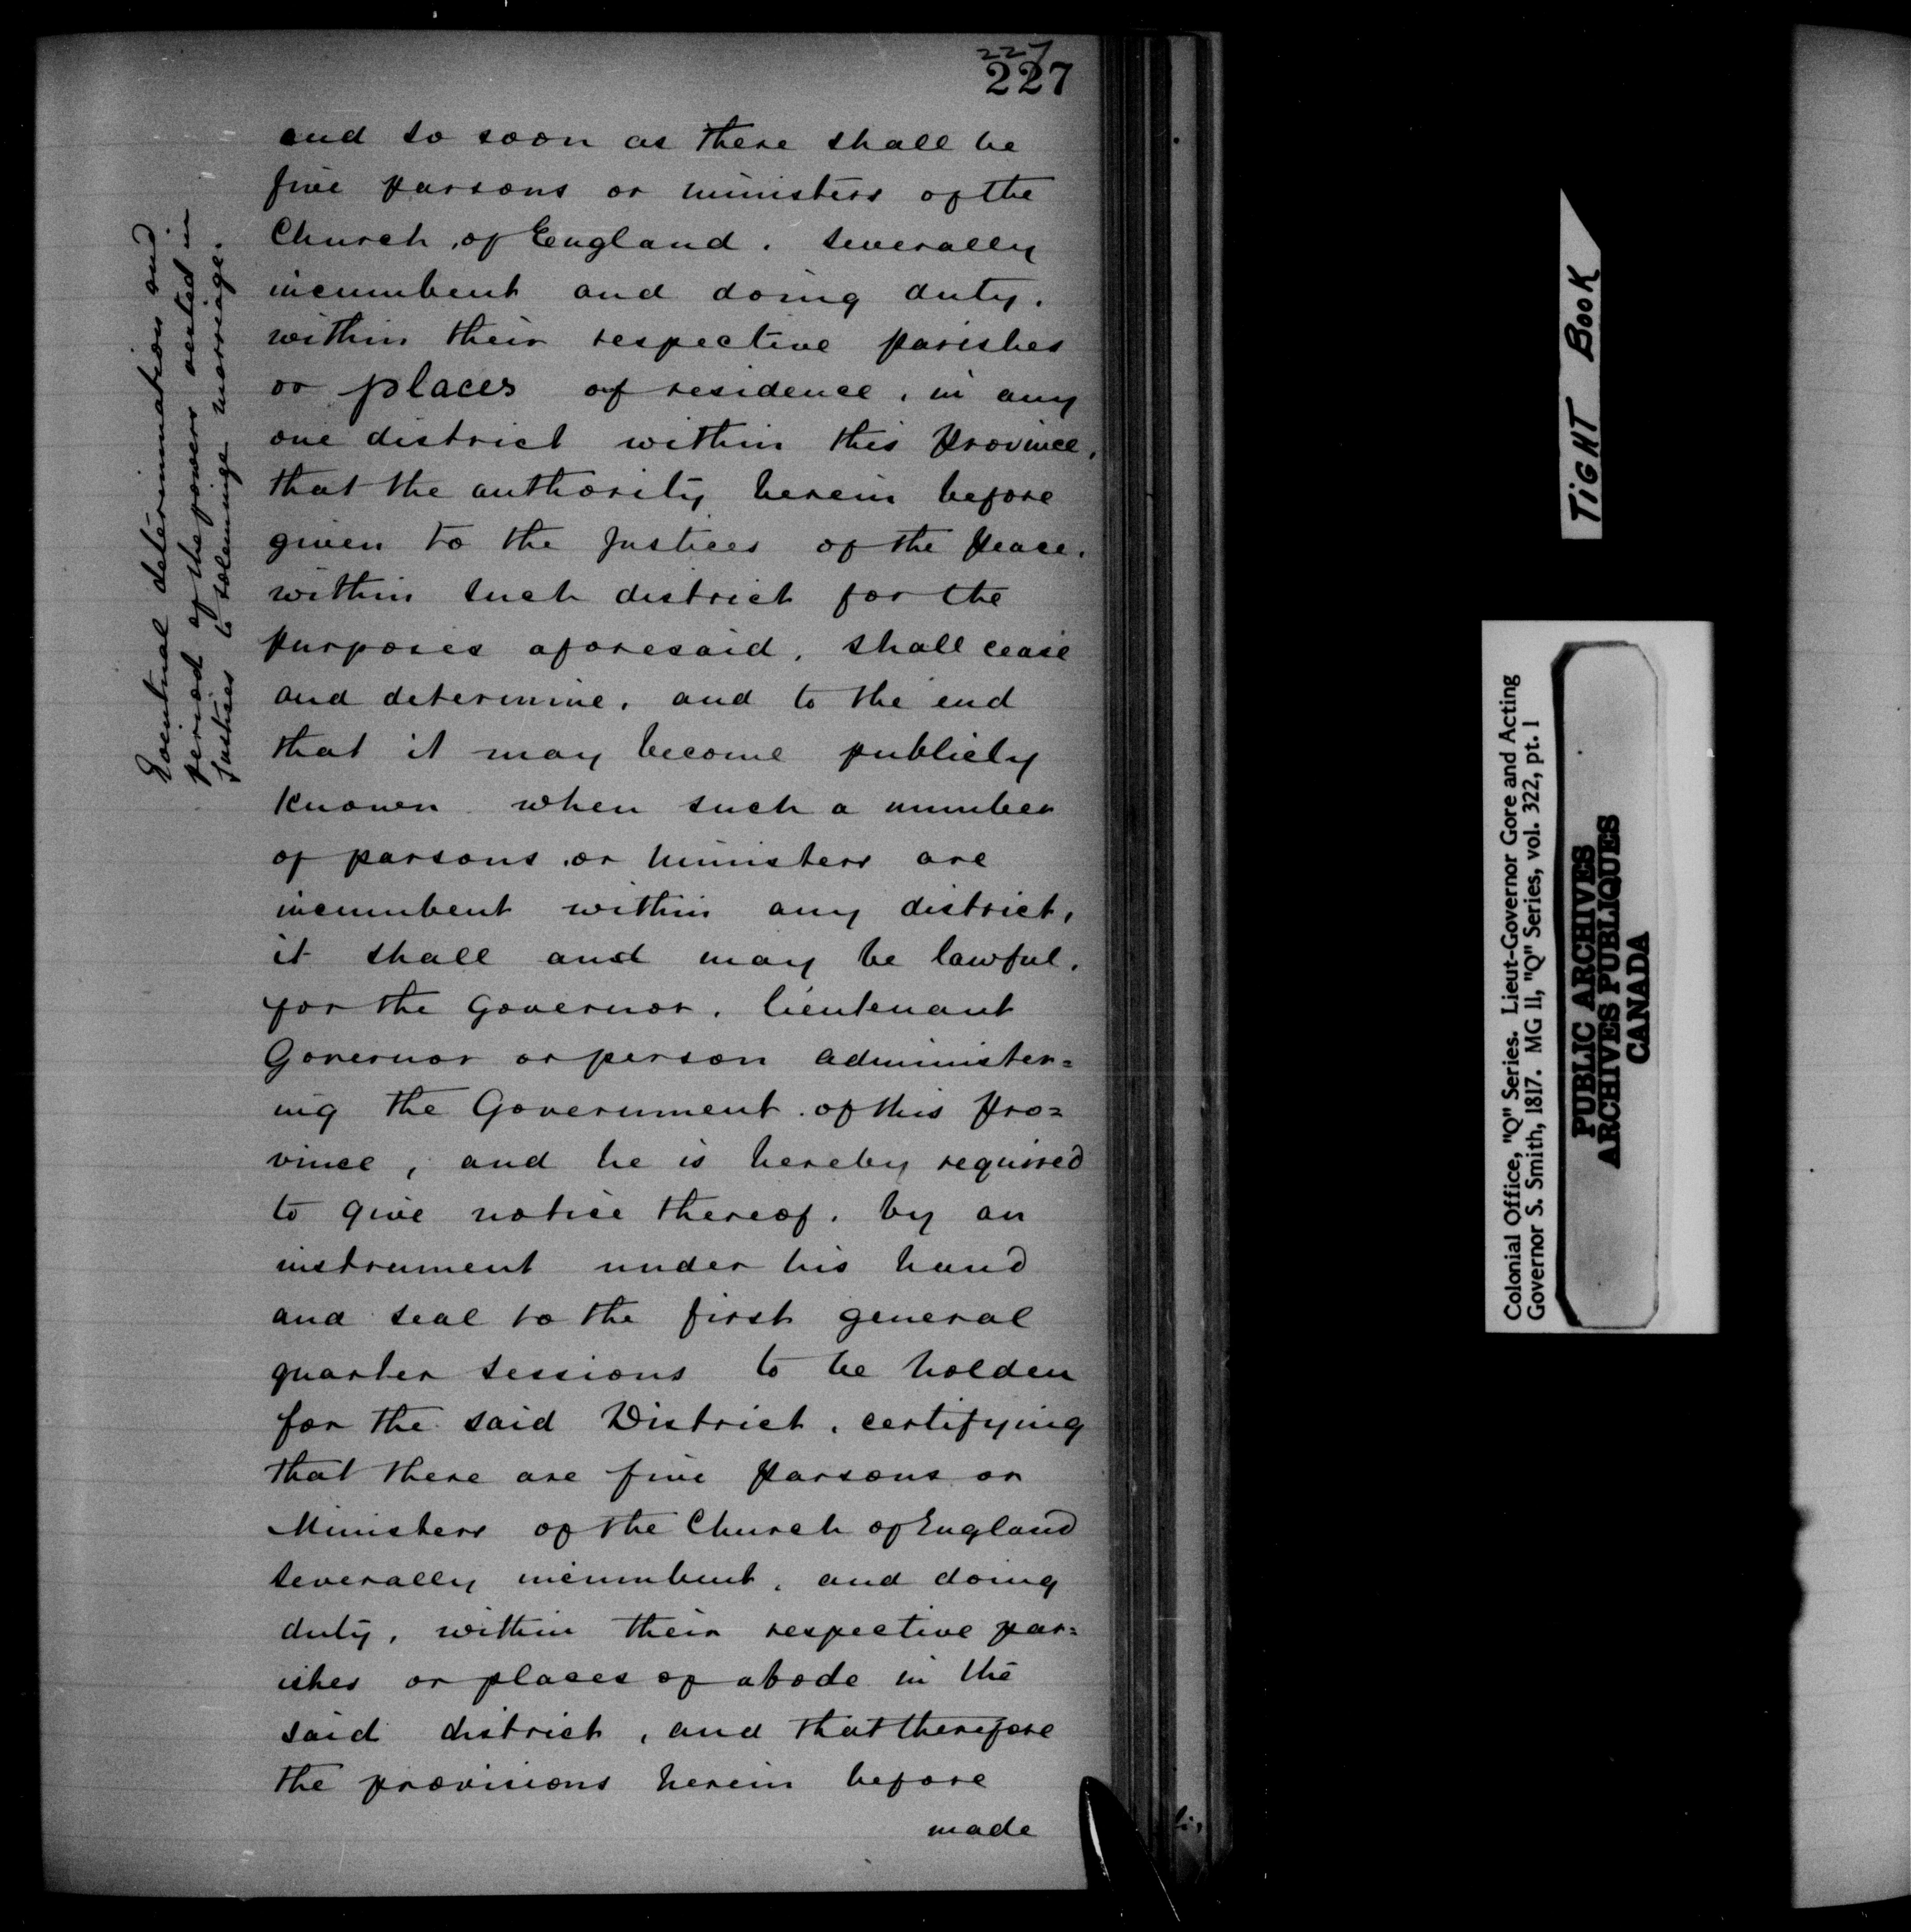 227
227
and so soon as there shall be
five parsons or ministers of the
Church, of England. severally
incumbent and doing duty.
within their respective parishes
or places of residence, in any
one district within this Province,
that the authority herein before
given to the Justices of the Peace.
within such district for the
purposes aforesaid, shall cease
and determine, and to the end
that it may become publicly
known when such a number
of parsons or ministers are
incumbent within any district,
it shall and may be lawful,
for the Governor, lieutenant
Governor or person administer=
ing the Government of this Pro=
vince, and he is hereby required
to give notice thereof, by an
instrument under his hand
and seal to the first general
quarter sessions to be holden
for the said District, certifying
that there are five Parsons or
Ministers of the Church of England
severally incumbent, and doing
duty, within their respective par=
ishes or places of abode in the
said district, and that therefore
the provisions herein before
made
Eventual determination and
period of the powers vested in
Justices to solemnize marriage.
TIGHT BOOK
Colonial Office, "Q" Series. Lieut-Governor Gore and Acting
Governor S. Smith, 1817. MG 11, "Q" Series, vol. 322, pt. 1
PUBLIC ARCHIVES
ARCHIVES PUBLIQUES
CANADA